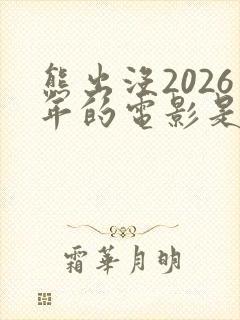 熊出没2026
年的电影是
霜華月明